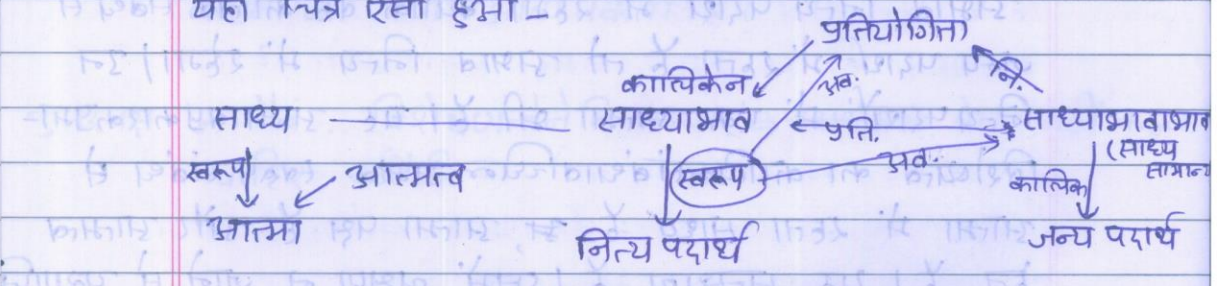 यहाँ चित्र ऐसा हुआ -
प्रतियोगिता
कालिकेन अव. नि.
साध्य साध्याभाव प्रति. साध्याभावाभाव
स्वरूप आत्मत्व स्वरूप अव. कालिक (साध्य सामान्य
आत्मा नित्य पदार्थ जन्य पदार्थ